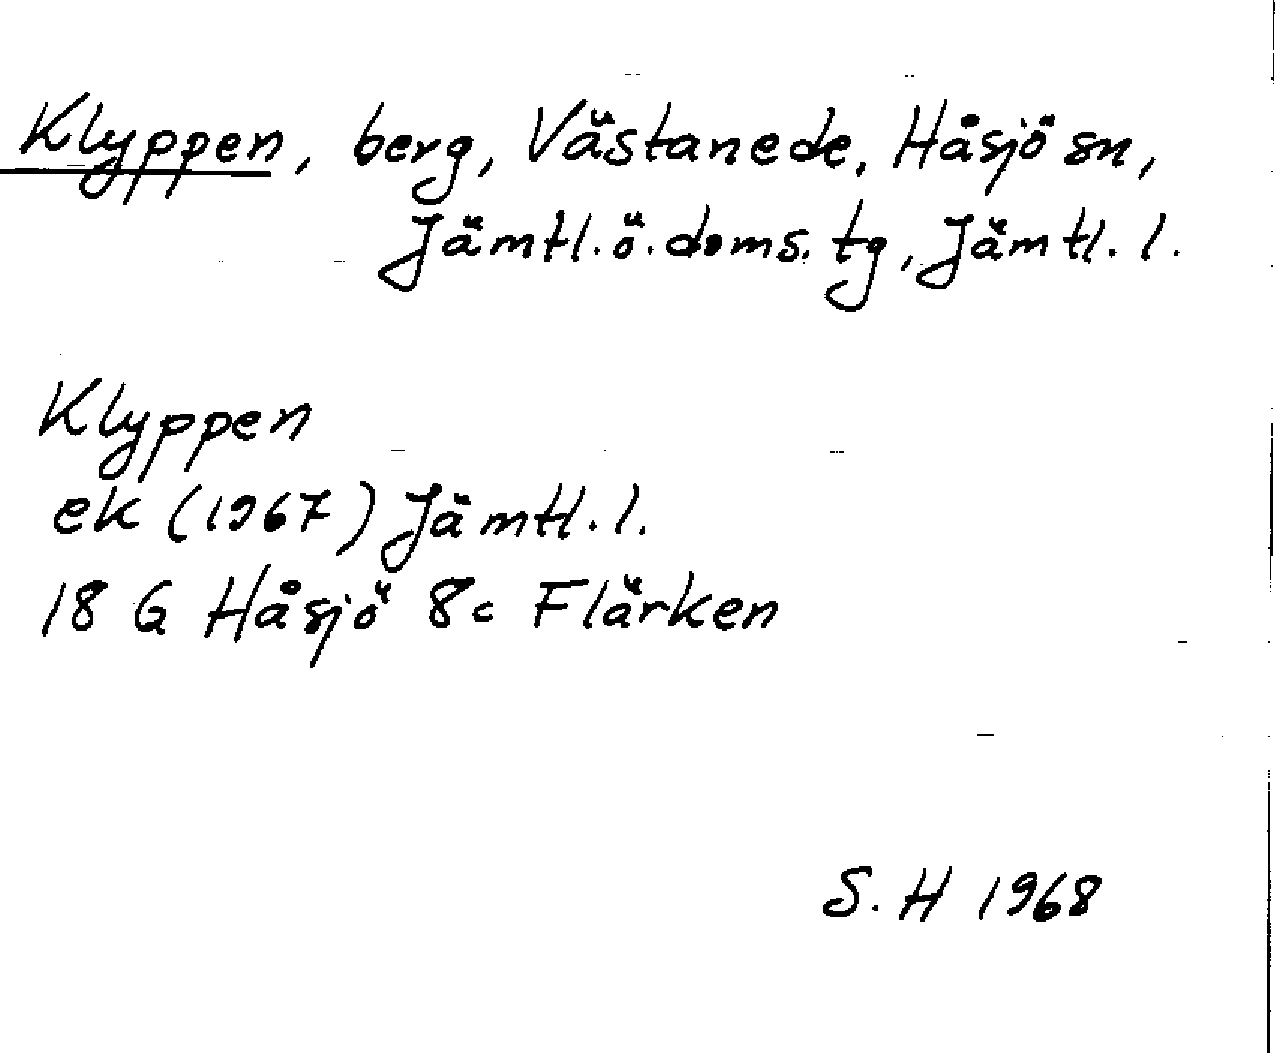 Klyppen, berg, Västanede, Håsjö sn,
Jämtl. ö. doms. tg, Jämtl. l.
Klyppen
ek (1967) Jämtl. l.
18 G Håsjö 8c Flärken
S. H 1968